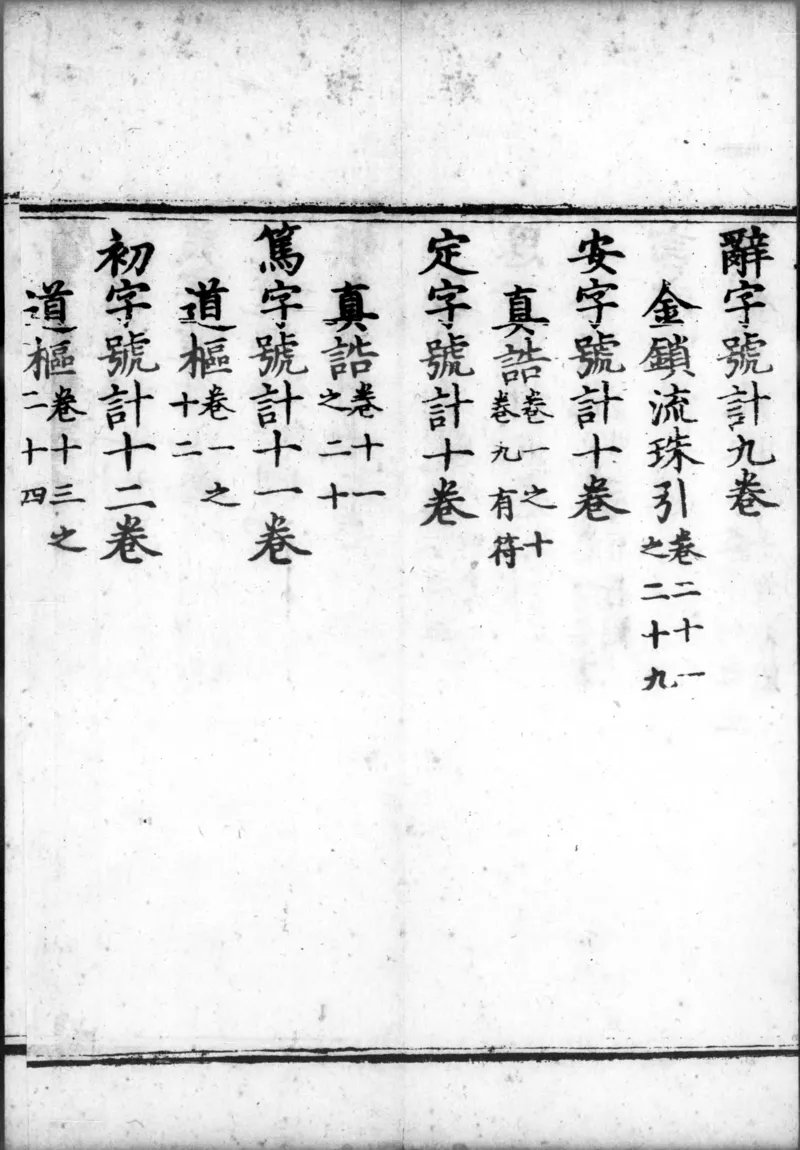 辭字號計九卷
金鎖流珠引卷二十一之二十九
安字號計十卷
真誥卷一之十卷九有符
定字號計十卷
真誥卷十一之二十
篤字號計十一卷
道樞卷一之十二
初字號計十二卷
道樞卷十三之二十四